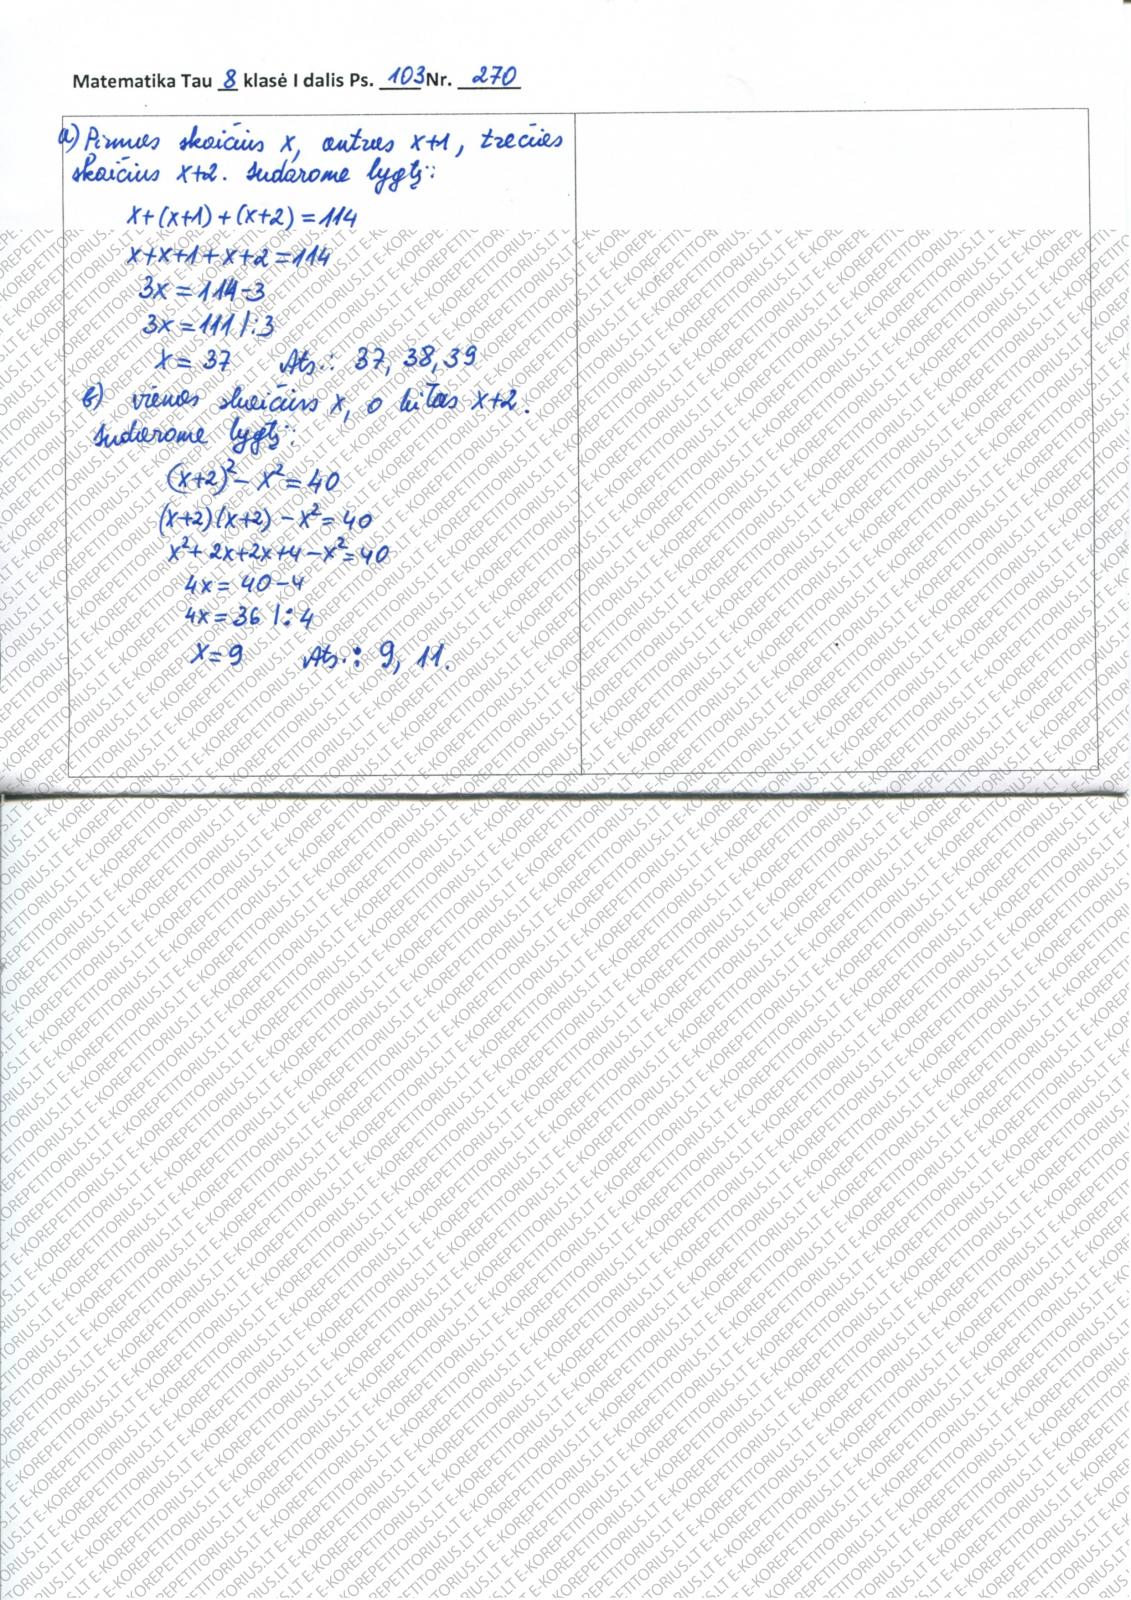 Matematika Tau 8 klasė I dalis Ps. 103 Nr. 270
a) Pirmas skaičius x, antras x+1, trečias
skaičius x+2. Sudarome lygtį:
x+(x+1)+(x+2)=114
x+x+1+x+2=114
3x=114-3
3x=111 /:3
x=37 Ats.: 37, 38, 39
b) vienas skaičius x, o kitas x+2.
Sudarome lygtį:
(x+2)²-x²=40
(x+2)(x+2)-x²=40
x²+2x+2x+4-x²=40
4x=40-4
4x=36 /:4
x=9 Ats.: 9, 11.
E-KOREPETITORIUS.LT